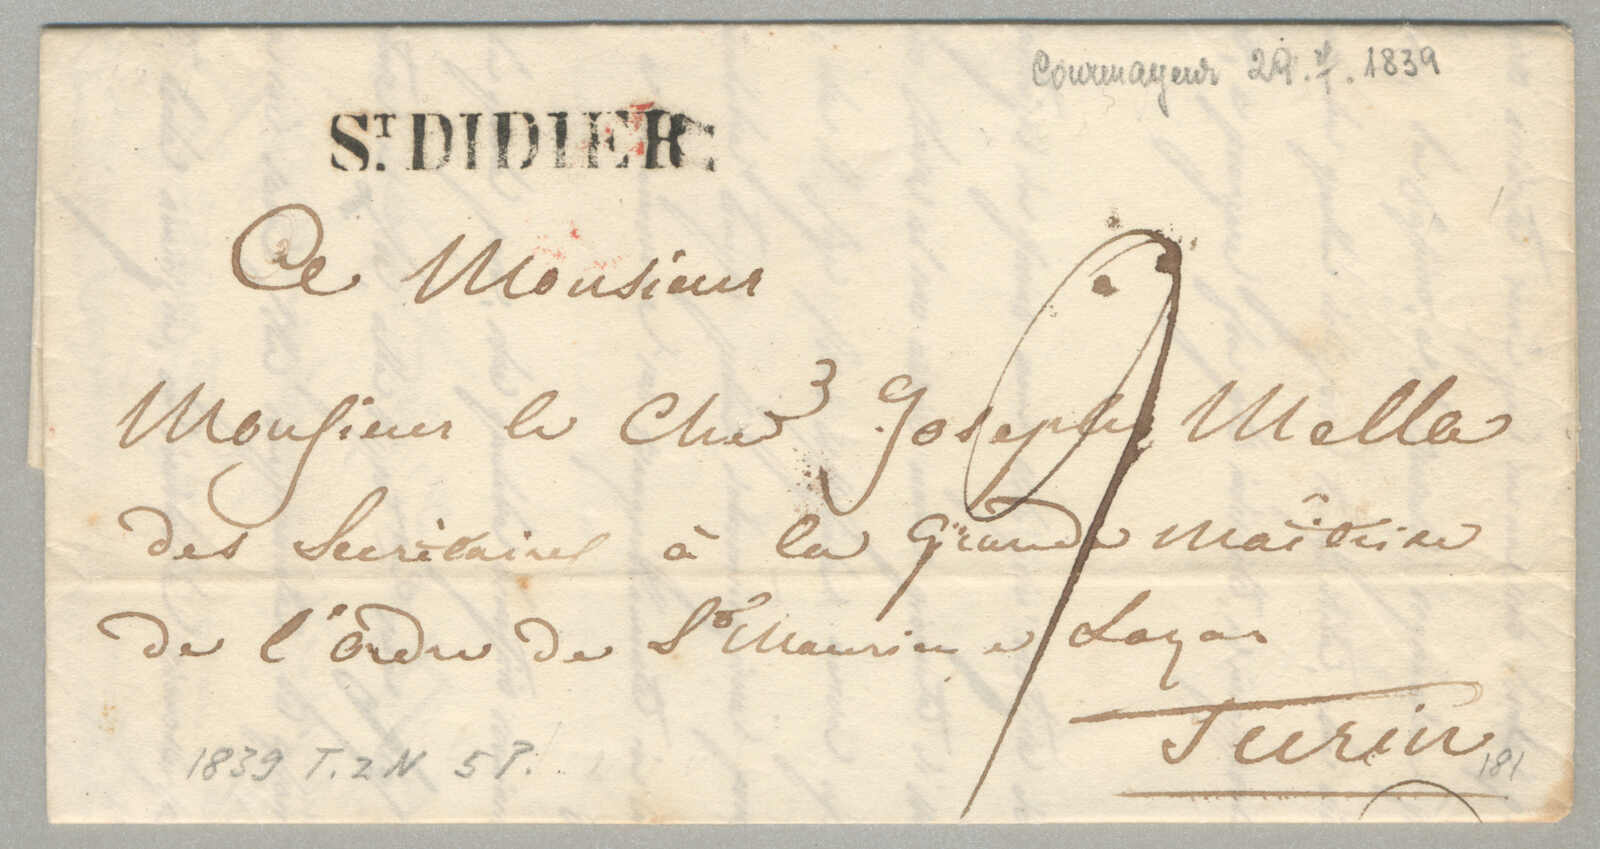 Courmayeur 29. 1839
Sᵀ. DIDIER.
A Monsieur
Monsieur le Chevʳ Joseph Mella
des Secrétaires à la Grande Maîtrise
de l'Ordre de Sᵗ Maurice e Lazar
Turin
181
1839 T. 2 N 5 P.